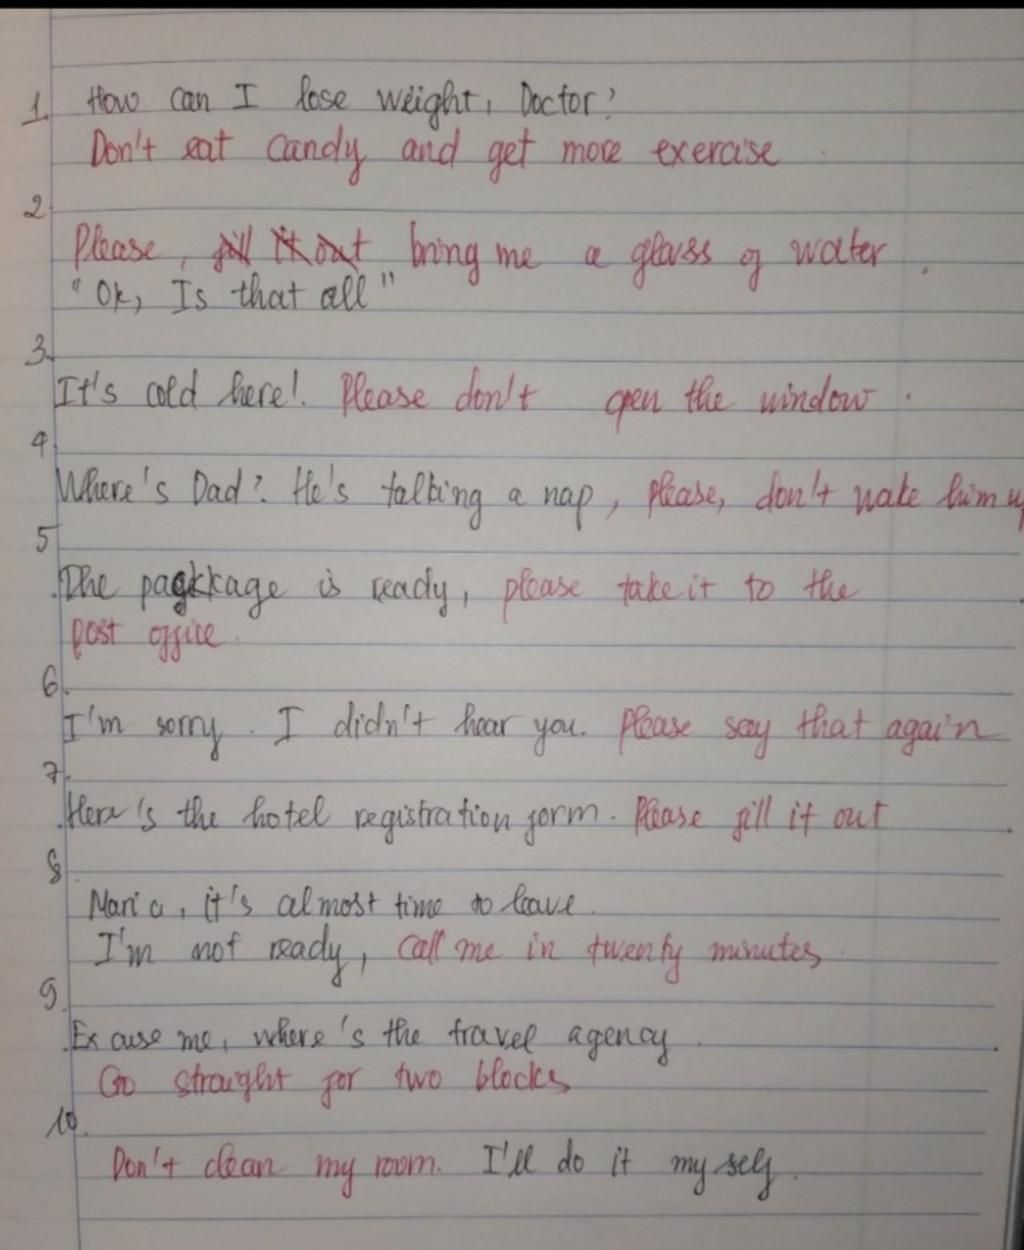 1. How can I lose weight, Doctor?
Don't eat candy and get more exercise
2.
Please, fill it out bring me a glass of water.
"Ok, Is that all"
3.
It's cold here!. Please don't open the window.
4.
Where's Dad? He's talking a nap, please, don't wake him up
5
The packkage is ready, please take it to the
post office.
6.
I'm sorry. I didn't hear you. Please say that again
7.
Here's the hotel registration form. Please fill it out
8
Maria, it's almost time to leave.
I'm not ready, call me in twenty minutes.
9.
Excuse me, where's the travel agency.
Go straight for two blocks
10.
Don't clean my room. I'll do it my self.